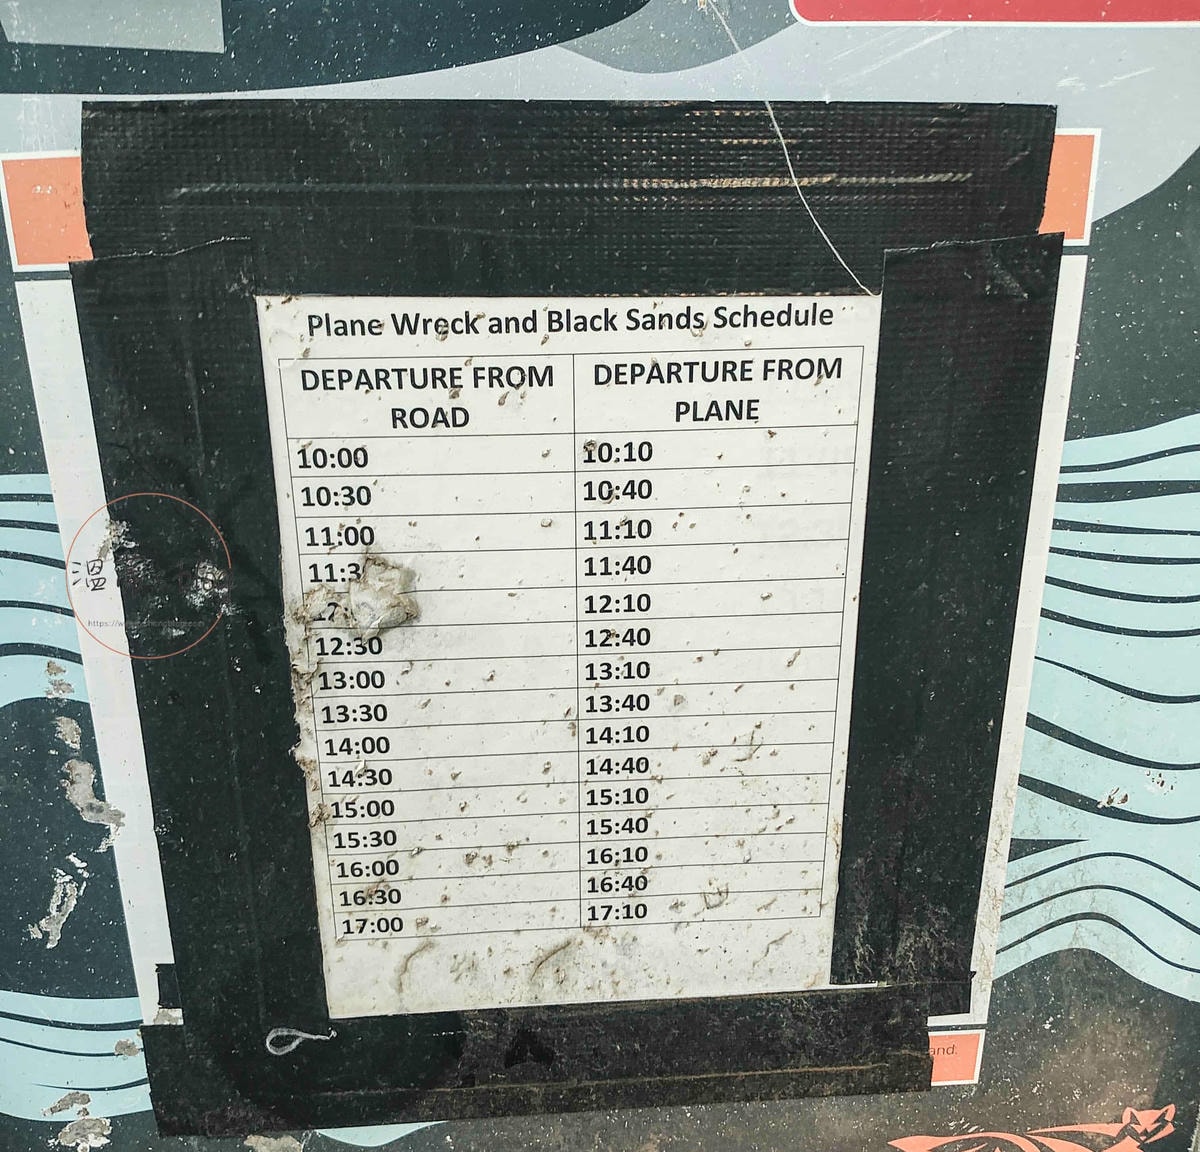 Plane Wreck and Black Sands Schedule
DEPARTURE FROM ROAD DEPARTURE FROM PLANE
10:00 10:10
10:30 10:40
11:00 11:10
11:3 11:40
12:10
12:30 12:40
13:00 13:10
13:30 13:40
14:00 14:10
14:30 14:40
15:00 15:10
15:30 15:40
16:00 16:10
16:30 16:40
17:00 17:10
and.
溫